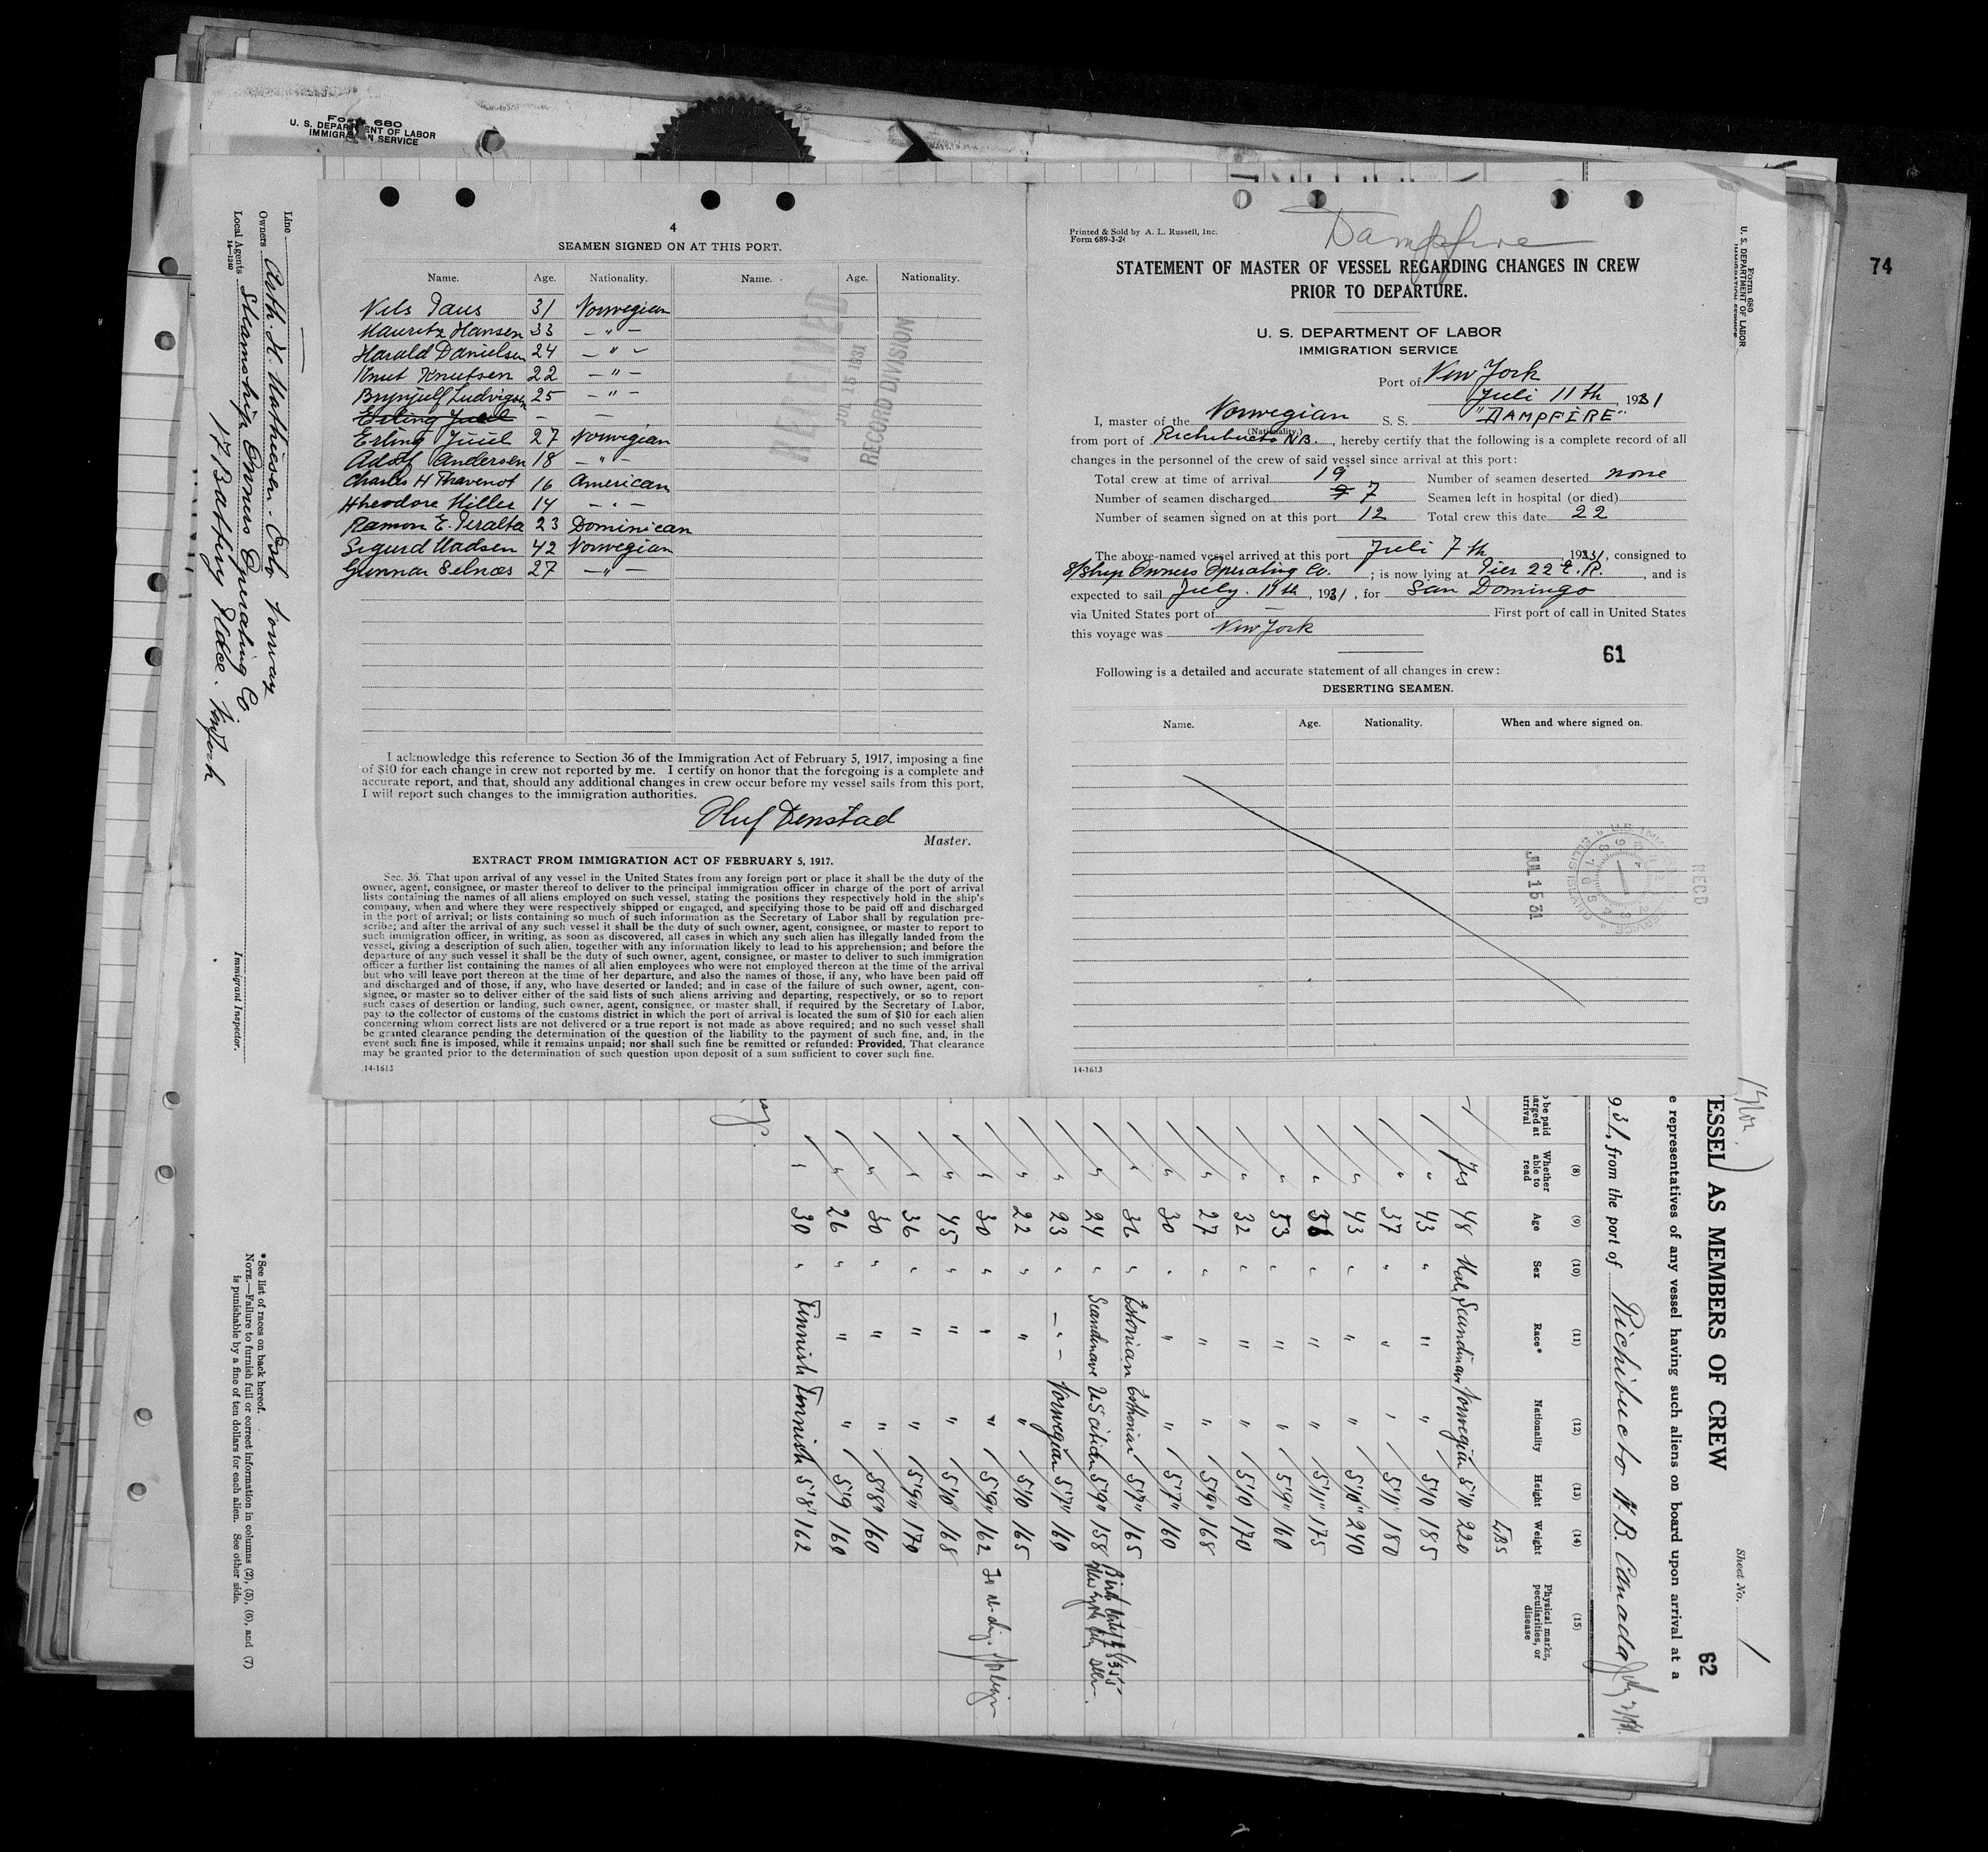 Form 680
U. S. DEPARTMENT OF LABOR
IMMIGRATION SERVICE
74
4
SEAMEN SIGNED ON AT THIS PORT.
Name. Age. Nationality. Name. Age. Nationality.
Nils Taus 31 Norwegian
Mauritz Hansen 33 — " —
Harald Danielsen 24 — " —
Knut Knutsen 22 — " —
Brynjulf Ludvigsen 25 — " —
Erling Juul — —
Erling Juul 27 Norwegian
Adolf Andersen 18 — " —
Charles H Thavenot 16 American
Theodore Hiller 14 — " —
Ramon E. Peralta 23 Dominican
Sigurd Madsen 42 Norwegian
Gunnar Selnæs 27 — " —
RECEIVED
JUL 16 1931
RECORD DIVISION
I acknowledge this reference to Section 36 of the Immigration Act of February 5, 1917, imposing a fine
of $10 for each change in crew not reported by me. I certify on honor that the foregoing is a complete and
accurate report, and that, should any additional changes in crew occur before my vessel sails from this port,
I will report such changes to the immigration authorities.
Oluf Denstad
Master.
EXTRACT FROM IMMIGRATION ACT OF FEBRUARY 5, 1917.
Sec. 36. That upon arrival of any vessel in the United States from any foreign port or place it shall be the duty of the
owner, agent, consignee, or master thereof to deliver to the principal immigration officer in charge of the port of arrival
lists containing the names of all aliens employed on such vessel, stating the positions they respectively hold in the ship's
company, when and where they were respectively shipped or engaged, and specifying those to be paid off and discharged
in the port of arrival; or lists containing so much of such information as the Secretary of Labor shall by regulation pre-
scribe; and after the arrival of any such vessel it shall be the duty of such owner, agent, consignee, or master to report to
such immigration officer, in writing, as soon as discovered, all cases in which any such alien has illegally landed from the
vessel, giving a description of such alien, together with any information likely to lead to his apprehension; and before the
departure of any such vessel it shall be the duty of such owner, agent, consignee, or master to deliver to such immigration
officer a further list containing the names of all alien employees who were not employed thereon at the time of the arrival
but who will leave port thereon at the time of her departure, and also the names of those, if any, who have been paid off
and discharged and of those, if any, who have deserted or landed; and in case of the failure of such owner, agent, con-
signee, or master so to deliver either of the said lists of such aliens arriving and departing, respectively, or so to report
such cases of desertion or landing, such owner, agent, consignee, or master shall, if required by the Secretary of Labor,
pay to the collector of customs of the customs district in which the port of arrival is located the sum of $10 for each alien
concerning whom correct lists are not delivered or a true report is not made as above required; and no such vessel shall
be granted clearance pending the determination of the question of the liability to the payment of such fine, and, in the
event such fine is imposed, while it remains unpaid; nor shall such fine be remitted or refunded: Provided, That clearance
may be granted prior to the determination of such question upon deposit of a sum sufficient to cover such fine.
14-1613
Printed & Sold by A. L. Russell, Inc.
Form 689-3-24
Dampfire
STATEMENT OF MASTER OF VESSEL REGARDING CHANGES IN CREW
PRIOR TO DEPARTURE.
U. S. DEPARTMENT OF LABOR
IMMIGRATION SERVICE
Port of New York
Juli 11th, 1931
I, master of the Norwegian S. S. "DAMPFIRE"
(Nationality.)
from port of Richibucto N.B., hereby certify that the following is a complete record of all
changes in the personnel of the crew of said vessel since arrival at this port:
Total crew at time of arrival 19 Number of seamen deserted none
Number of seamen discharged 9 7 Seamen left in hospital (or died)
Number of seamen signed on at this port 12 Total crew this date 22
The above-named vessel arrived at this port Juli 7th, 1931, consigned to
S/Ship Owners Operating Co.; is now lying at Pier 22 E. R., and is
expected to sail July 11th, 1931, for San Domingo
via United States port of — First port of call in United States
this voyage was New York
61
Following is a detailed and accurate statement of all changes in crew:
DESERTING SEAMEN.
Name. Age. Nationality. When and where signed on.
JUL 15 31
RECD
14-1613
Form 689
U. S. DEPARTMENT OF LABOR
IMMIGRATION SERVICE
Line
Owners Arth. H. Mathiesen. Oslo Norway
Local Agents Steamship Owners Operating Co
17 Battery Place. New York
14-1240
Immigrant Inspector.
*See list of races on back hereof.
NOTE.—Failure to furnish full or correct information in columns (2), (5), (6), and (7)
is punishable by a fine of ten dollars for each alien. See other side.
Sheet No. 1
62
ESSEL AS MEMBERS OF CREW
e representatives of any vessel having such aliens on board upon arrival at a
31, from the port of Richibucto N.B. Canada
(8) (9) (10) (11) (12) (13) (14) (15)
Whether able to read Age Sex Race* Nationality Height Weight Physical marks, peculiarities, or disease
LBS
Yes 48 Male Scandinav Norwegian 5'10 220
" 43 " " " 5'10 185
" 37 " " " 5'11 180
" 43 " " " 5'10" 240
" 36 " " " 5'11" 175
" 53 " " " 5'9" 160
" 32 " " " 5'10 170
" 27 " " " 5'9" 168
" 30 " " " 5'7" 160
" 36 " Estonian Esthonian 5'7" 165
" 24 " Scandinav US citizen 5'9" 158
" 23 " — " — Norwegian 5'7" 160
" 22 " " " 5'10 165
" 30 " " " 5'9" 162
" 45 " " " 5'10" 168
" 36 " " " 5'9" 170
" 30 " " " 5'8" 160
" 26 " " " 5'9 160
" 30 " Finnish Finnish 5'8" 162